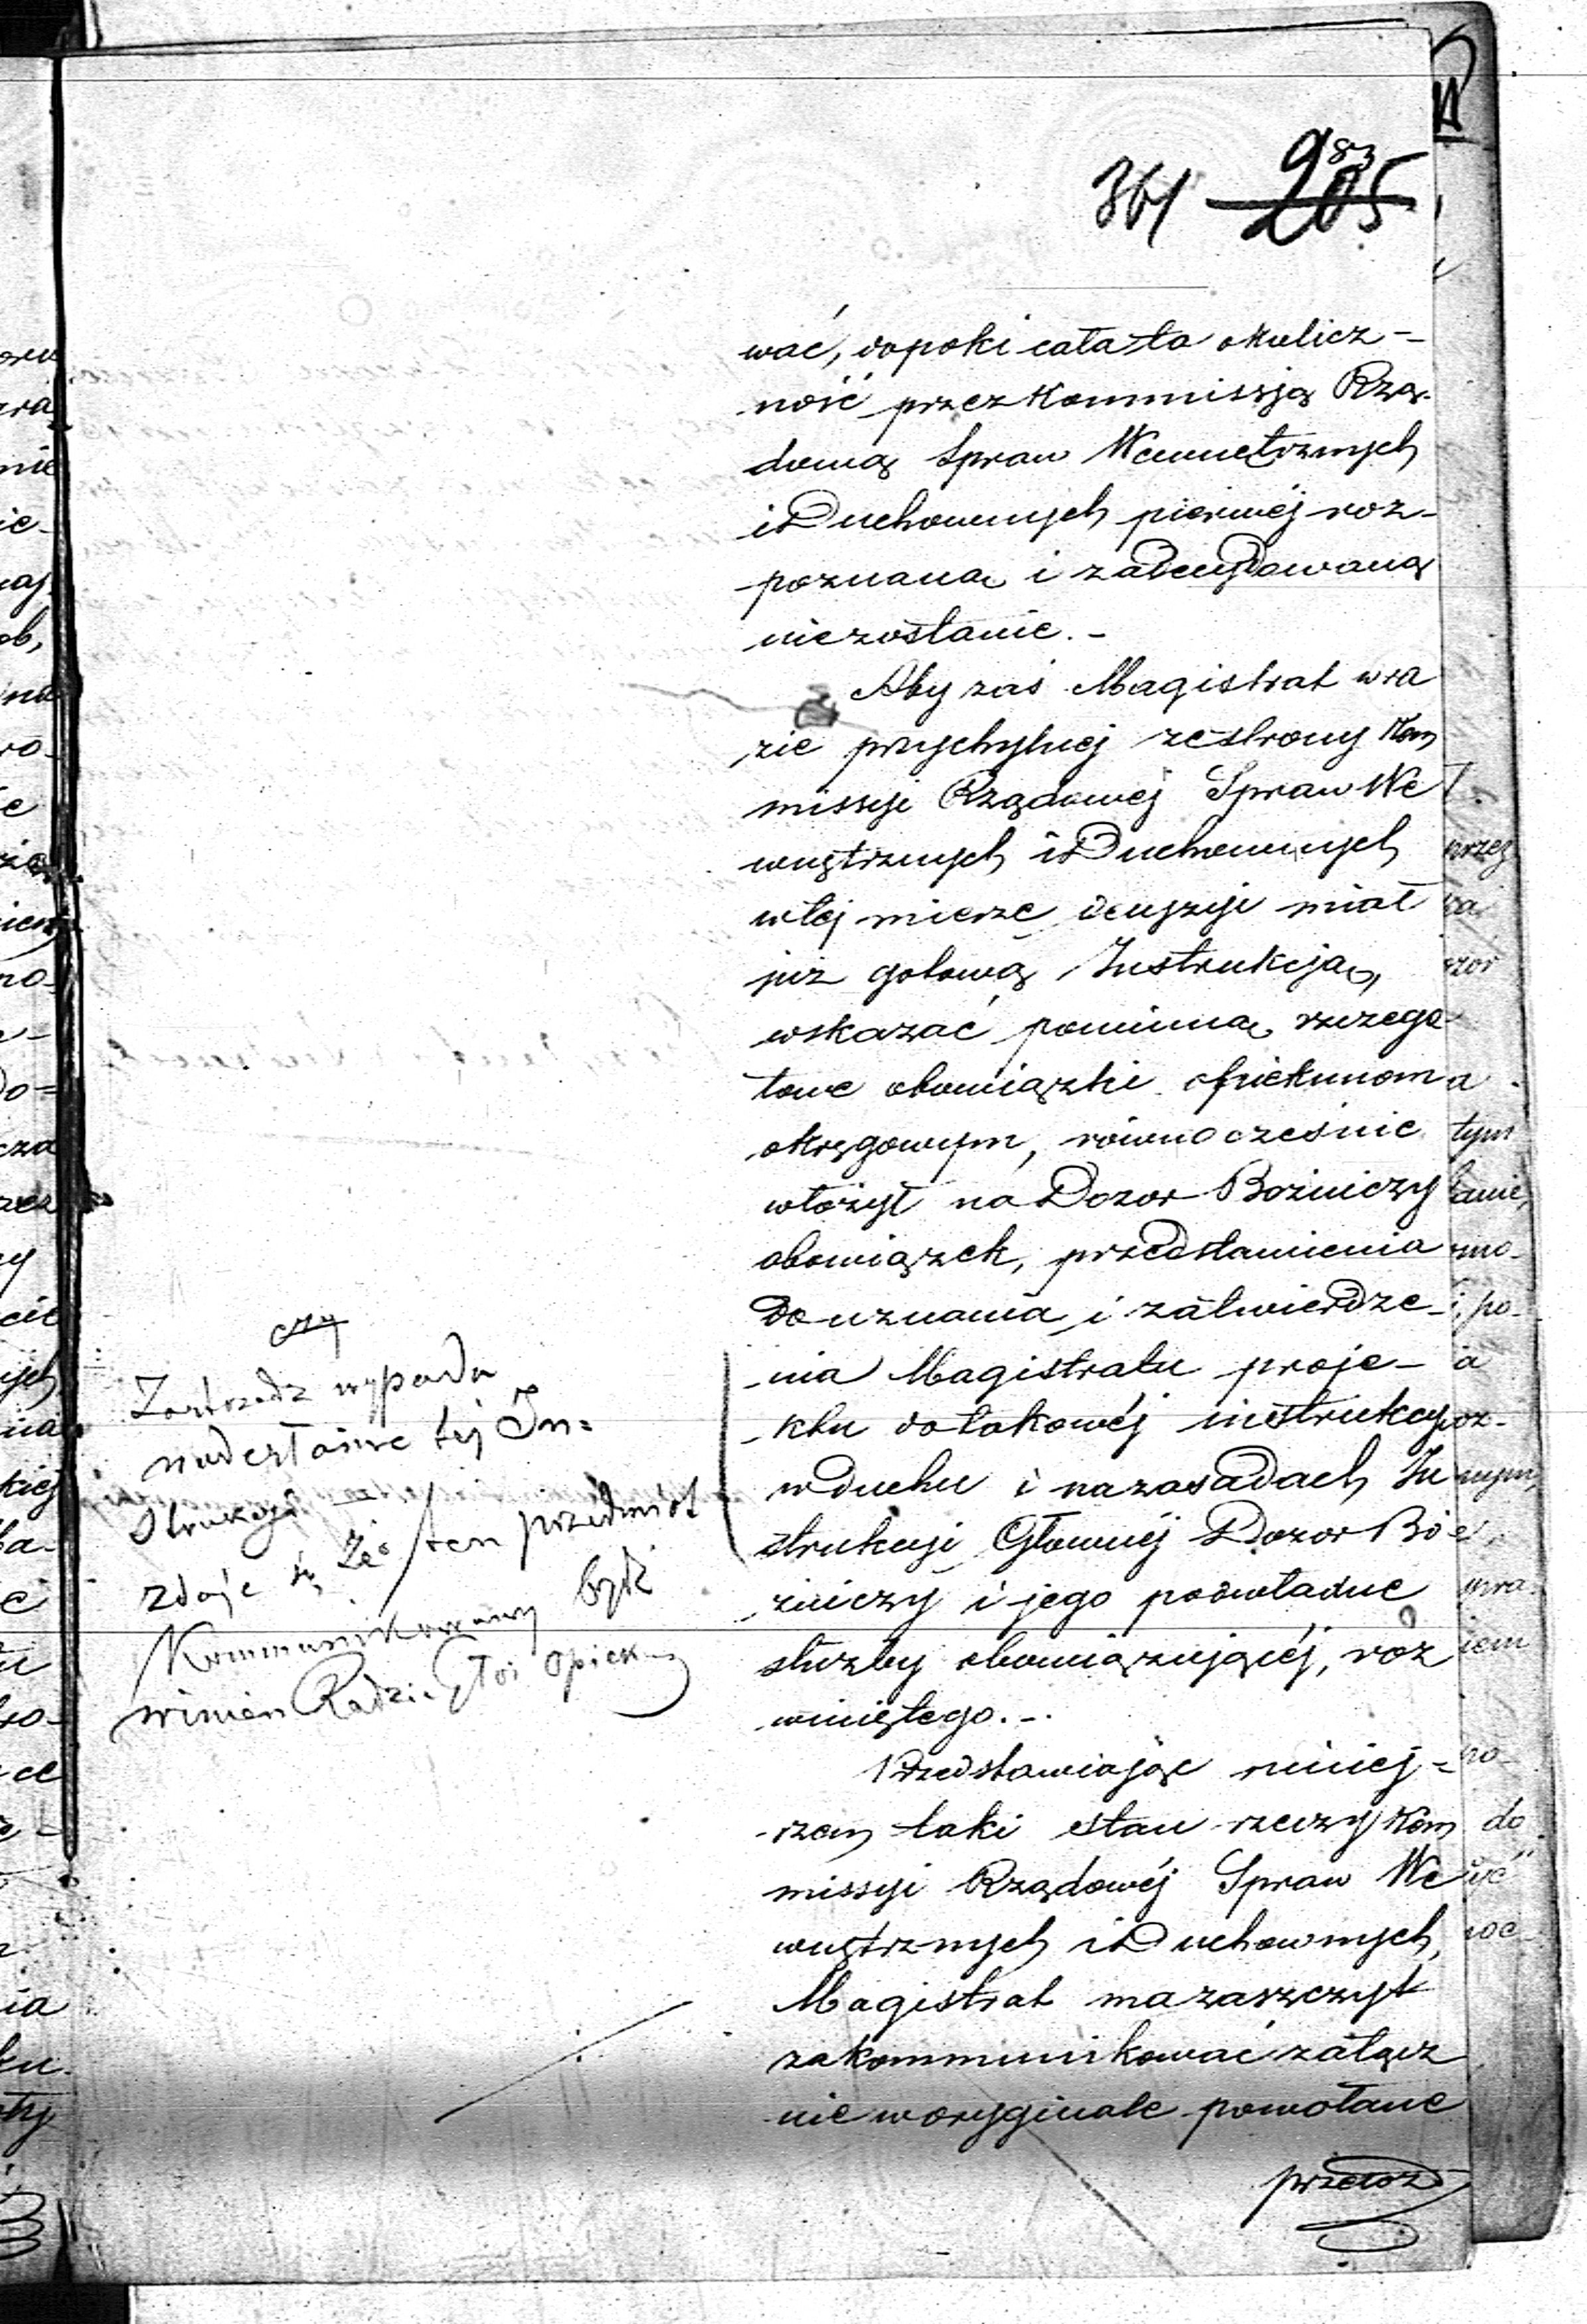 361 205
983
wać, dopoki cała ta okolicz-
ność przez Kommissją Rzą-
dową Spraw Wewnętrznych
i Duchownych pierwéj roz-
poznaną i zadecydowaną
niezostanie. -
Aby zaś Magistrat w ra
zie przychylnej ze strony Kom
missyi Rządowéj Spraw We
wnętrznych i Duchownych
w tej mierze decyzyi miał
już gotową Instrukcją,
wskazać powinną szczegó
łowe obowiązki opiekunom
okręgowym, równocześnie
włożył na Dozor Bożniczy
obowiązek, przedstawienia
do uznania i zatwierdze-
nia Magistratu proje-
ktu do takowéj instrukcyi
w duchu i na zasadach In
strukcyi Głównéj Dozor Bó
żniczy i jego podwładne
służby obowiązującéj, roz
winiętego. -
Przedstawiając niniej-
szem taki stan rzeczy Kom
missyi Rządowéj Spraw We
wnętrznych i Duchownych,
Magistrat ma zaszczyt
zakommunikować załącz
nie w oryginale powołane
przełoż
czy
wypada
nadesłanie tej In=
strukcyi
zdaje się że ten przedmiot
Kommunikowany być
winien Radzie Głó Opiek